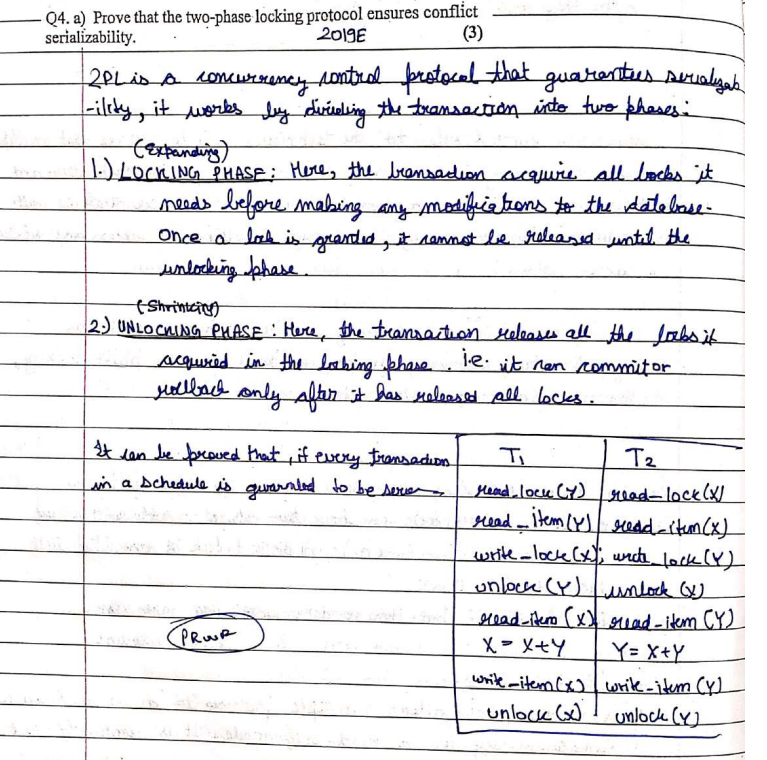 Q4. a) Prove that the two-phase locking protocol ensures conflict
serializability. 2019E (3)
2PL is a concurrency control protocol that guarantees serializab
-ility, it works by dividing the transaction into two phases:
(Expanding)
1.) LOCKING PHASE: Here, the transaction acquire all locks it
needs before making any modifications to the database.
Once a lock is granted, it cannot be released until the
unlocking phase.
(Shrinking)
2.) UNLOCKING PHASE: Here, the transaction releases all the locks it
acquired in the locking phase. i.e. it can commit or
rollback only after it has released all locks.
It can be proved that, if every transaction
in a schedule is guaranted to be
T1 T2
read_lock(Y) read_lock(X)
read_item(Y) read_item(X)
write_lock(X); write_lock(Y)
unlock(Y) unlock(X)
read_item(X) read_item(Y)
X = X+Y Y = X+Y
write_item(X) write_item(Y)
unlock(X) unlock(Y)